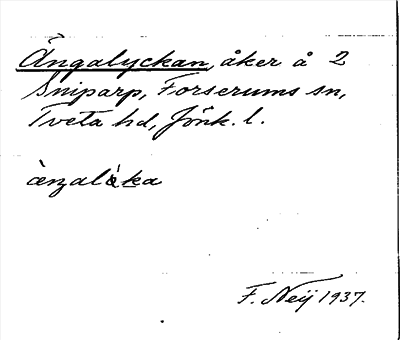 Ängalyckan, åker å 2
Sniparp, Forserums sn,
Tveta hd, Jönk. l.
F. Neij 1937.